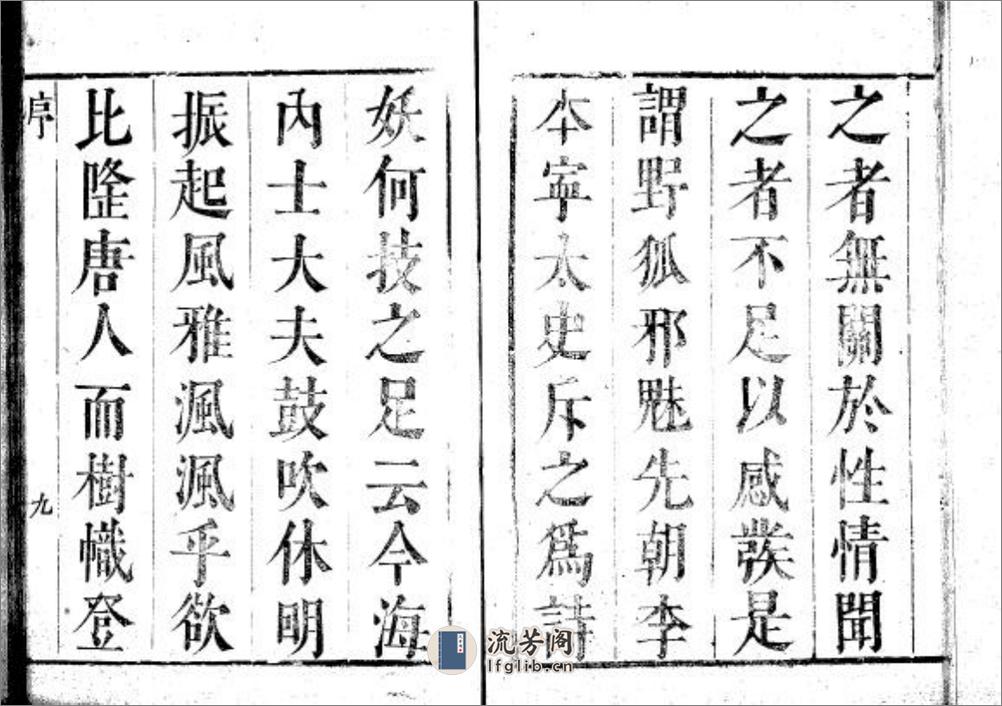 之者無關於性情聞
之者不足以感發是
謂野狐邪魅先朝李
本寧太史斥之爲詩
妖何技之足云今海
內士大夫鼓吹休明
振起風雅渢渢乎欲
比隆唐人而樹幟登
序
九
流芳阁
lfglib.cn